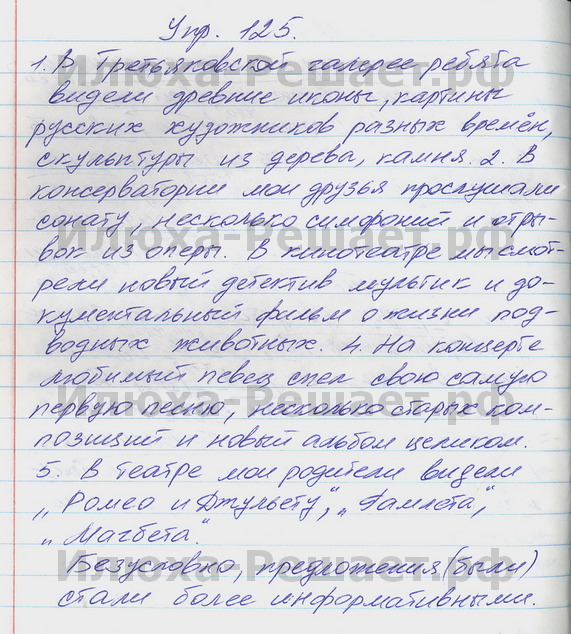 Упр. 125.
1. В Третьяковской галерее ребята
видели древние иконы, картины
русских художников разных времён,
скульптуры из дерева, камня. 2. В
консерватории мои друзья прослушали
сонату, несколько симфоний и отры-
вок из оперы. В кинотеатре мы смот-
рели новый детектив мультик и до-
кументальный фильм о жизни под-
водных животных. 4. На концерте
любимый певец спел свою самую
первую песню, несколько старых ком-
позиций и новый альбом целиком.
5. В театре мои родители видели
„Ромео и Джульету“, „Гамлета“,
„Магбета“.
Безусловно, предложения (были)
стали более информативными.
Илюха-Решает.рф
Илюха-Решает.рф
Илюха-Решает.рф
Илюха-Решает.рф